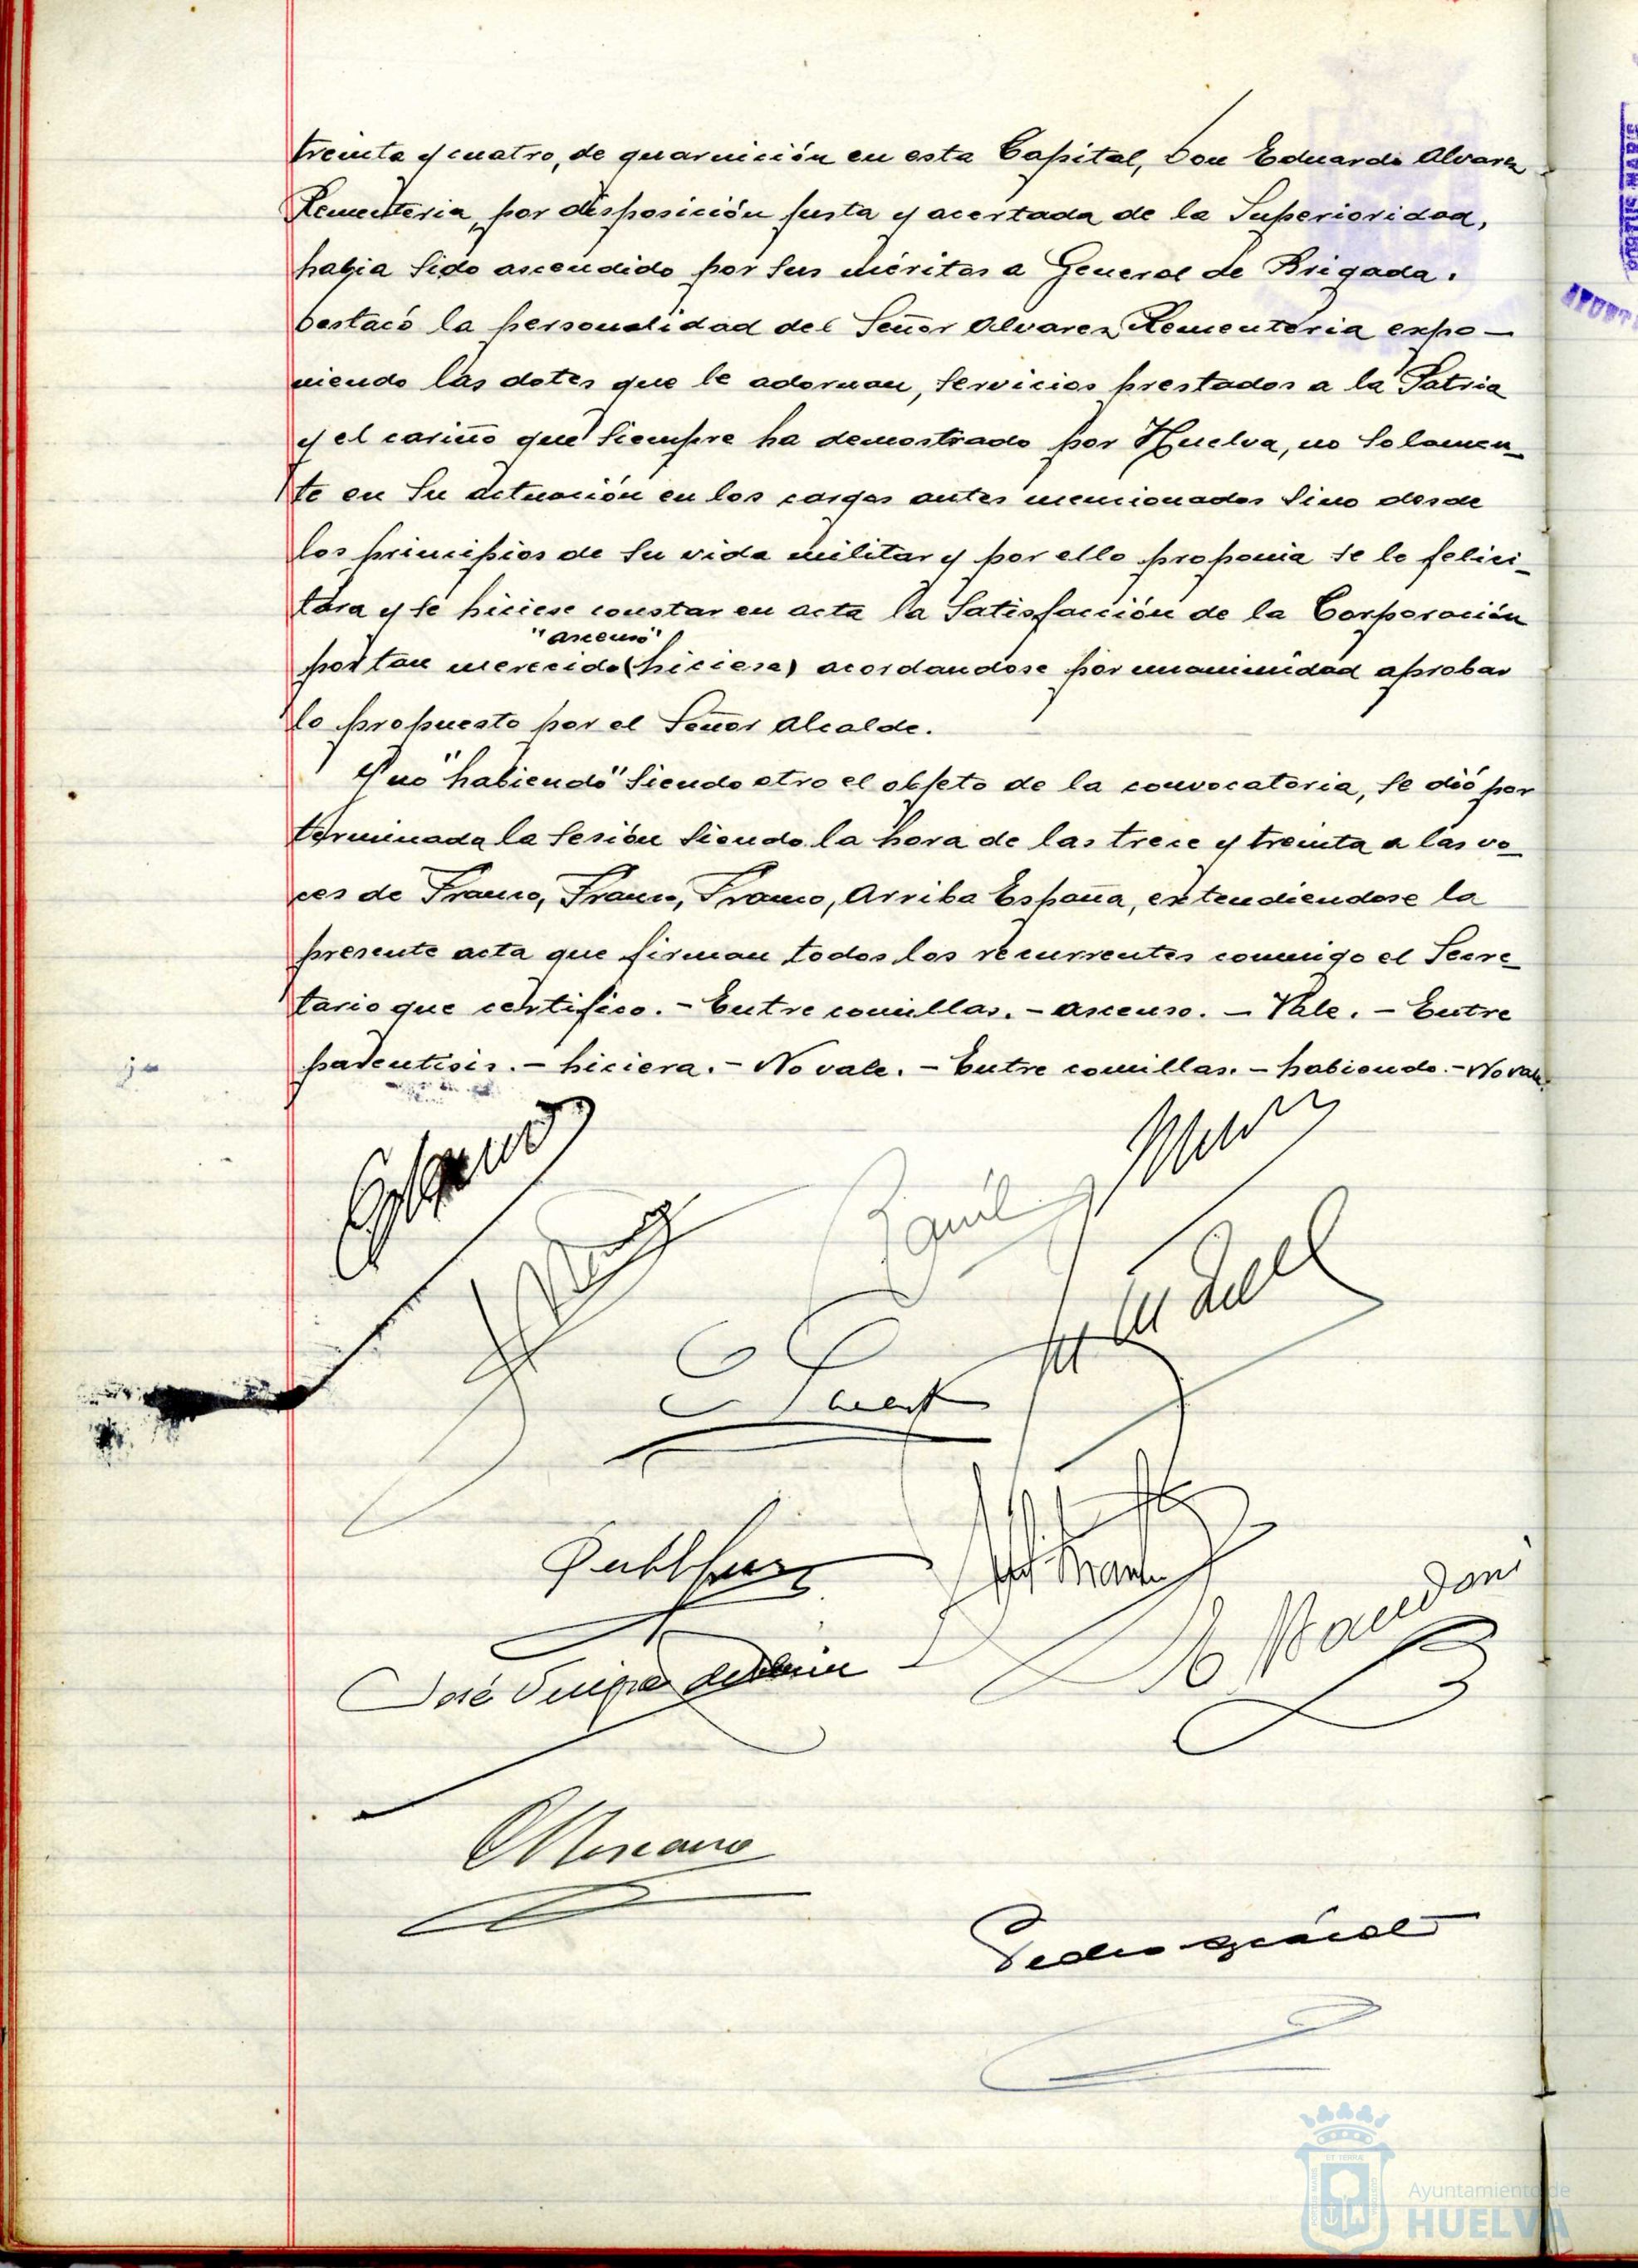 treinta y cuatro, de guarnición en esta Capital, Don Eduardo Alvarez
Rementeria, por disposición justa y acertada de la Superioridad,
habia sido ascendido por sus méritos a General de Brigada.
Destacó la personalidad del Señor Alvarez Rementeria expo-
niendo las dotes que le adornan, servicios prestados a la Patria
y el cariño que siempre ha demostrado por Huelva, no solamen-
te en su actuación en los cargos antes mencionados sino desde
los principios de su vida militar y por ello proponia se le felici-
tara y se hiciese constar en acta la satisfacción de la Corporación
"ascenso"
por tan merecido (hiciera) acordandose por unanimidad aprobar
lo propuesto por el Señor Alcalde.
Y no "habiendo" siendo otro el objeto de la convocatoria, se dió por
terminada la sesión siendo la hora de las trece y treinta a las vo-
ces de Franco, Franco, Franco, Arriba España, extendiendose la
presente acta que firman todos los recurrentes conmigo el Secre-
tario que certifico. - Entre comillas. - ascenso. - Vale. - Entre
parentisis. - hiciera. - No vale. - Entre comillas. - habiendo. - No vale.
José
Pedro
Ayuntamiento de
HUELVA